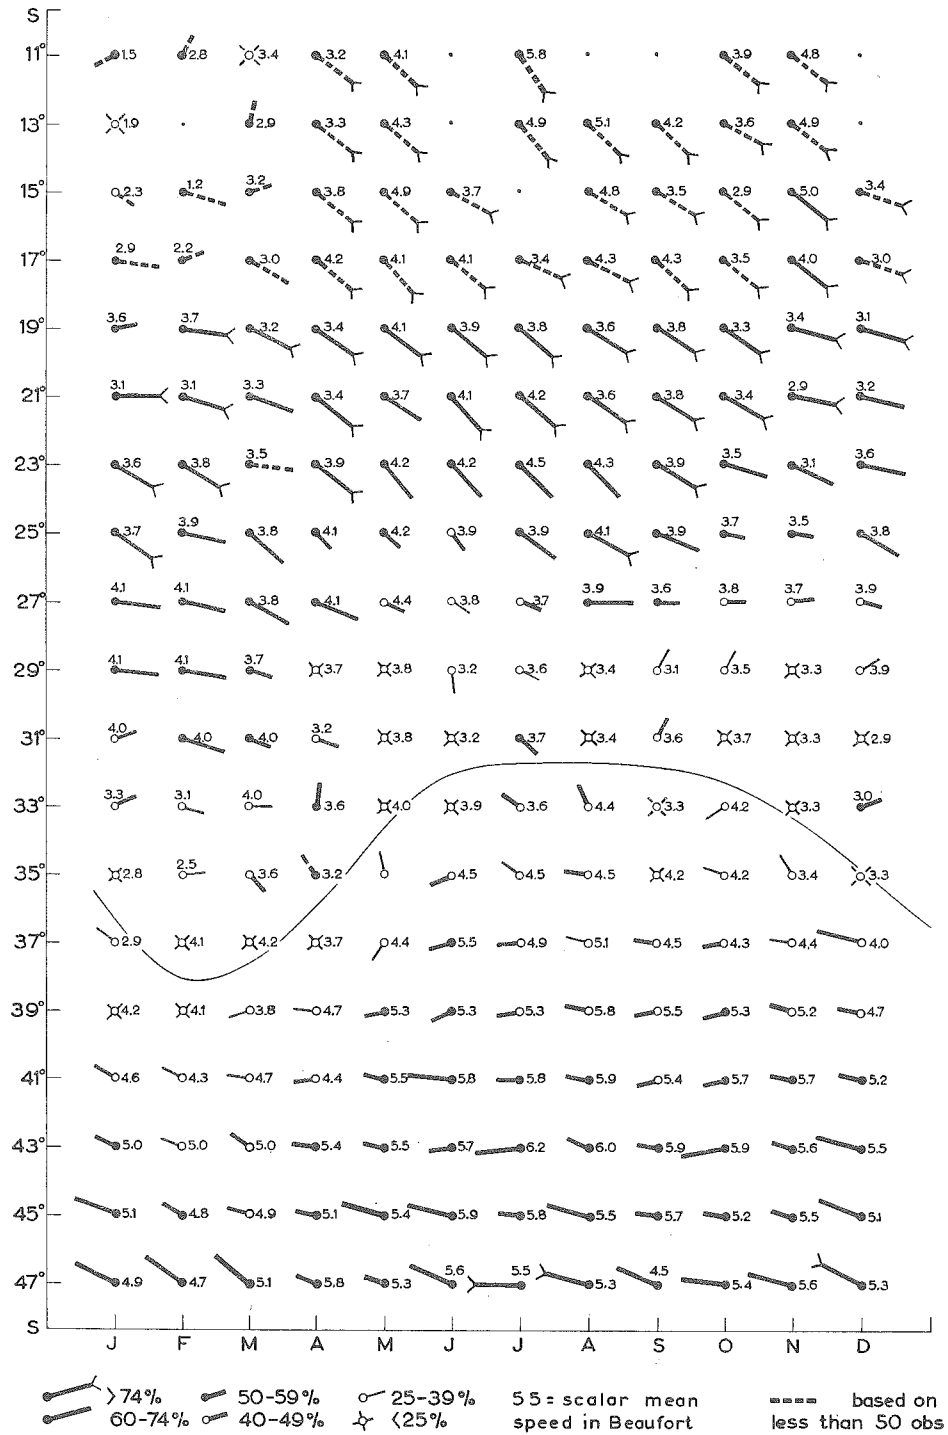 S
11° 1.5 2.8 3.4 3.2 4.1 5.8 3.9 4.8
13° 1.9 2.9 3.3 4.3 4.9 5.1 4.2 3.6 4.9
15° 2.3 1.2 3.2 3.8 4.9 3.7 4.8 3.5 2.9 5.0 3.4
17° 2.9 2.2 3.0 4.2 4.1 4.1 3.4 4.3 4.3 3.5 4.0 3.0
19° 3.6 3.7 3.2 3.4 4.1 3.9 3.8 3.6 3.8 3.3 3.4 3.1
21° 3.1 3.1 3.3 3.4 3.7 4.1 4.2 3.6 3.8 3.4 2.9 3.2
23° 3.6 3.8 3.5 3.9 4.2 4.2 4.5 4.3 3.9 3.5 3.1 3.6
25° 3.7 3.9 3.8 4.1 4.2 3.9 3.9 4.1 3.9 3.7 3.5 3.8
27° 4.1 4.1 3.8 4.1 4.4 3.8 3.7 3.9 3.6 3.8 3.7 3.9
29° 4.1 4.1 3.7 3.7 3.8 3.2 3.6 3.4 3.1 3.5 3.3 3.9
31° 4.0 4.0 4.0 3.2 3.8 3.2 3.7 3.4 3.6 3.7 3.3 2.9
33° 3.3 3.1 4.0 3.6 4.0 3.9 3.6 4.4 3.3 4.2 3.3 3.0
35° 2.8 2.5 3.6 3.2 4.5 4.5 4.5 4.2 4.2 3.4 3.3
37° 2.9 4.1 4.2 3.7 4.4 5.5 4.9 5.1 4.5 4.3 4.4 4.0
39° 4.2 4.1 3.8 4.7 5.3 5.3 5.3 5.8 5.5 5.3 5.2 4.7
41° 4.6 4.3 4.7 4.4 5.5 5.8 5.8 5.9 5.4 5.7 5.7 5.2
43° 5.0 5.0 5.0 5.4 5.5 5.7 6.2 6.0 5.9 5.9 5.6 5.5
45° 5.1 4.8 4.9 5.1 5.4 5.9 5.8 5.5 5.7 5.2 5.5 5.1
47° 4.9 4.7 5.1 5.8 5.3 5.6 5.5 5.3 4.5 5.4 5.6 5.3
S
J F M A M J J A S O N D
>74% 50-59% 25-39% 55= scalar mean based on
60-74% 40-49% <25% speed in Beaufort less than 50 obs